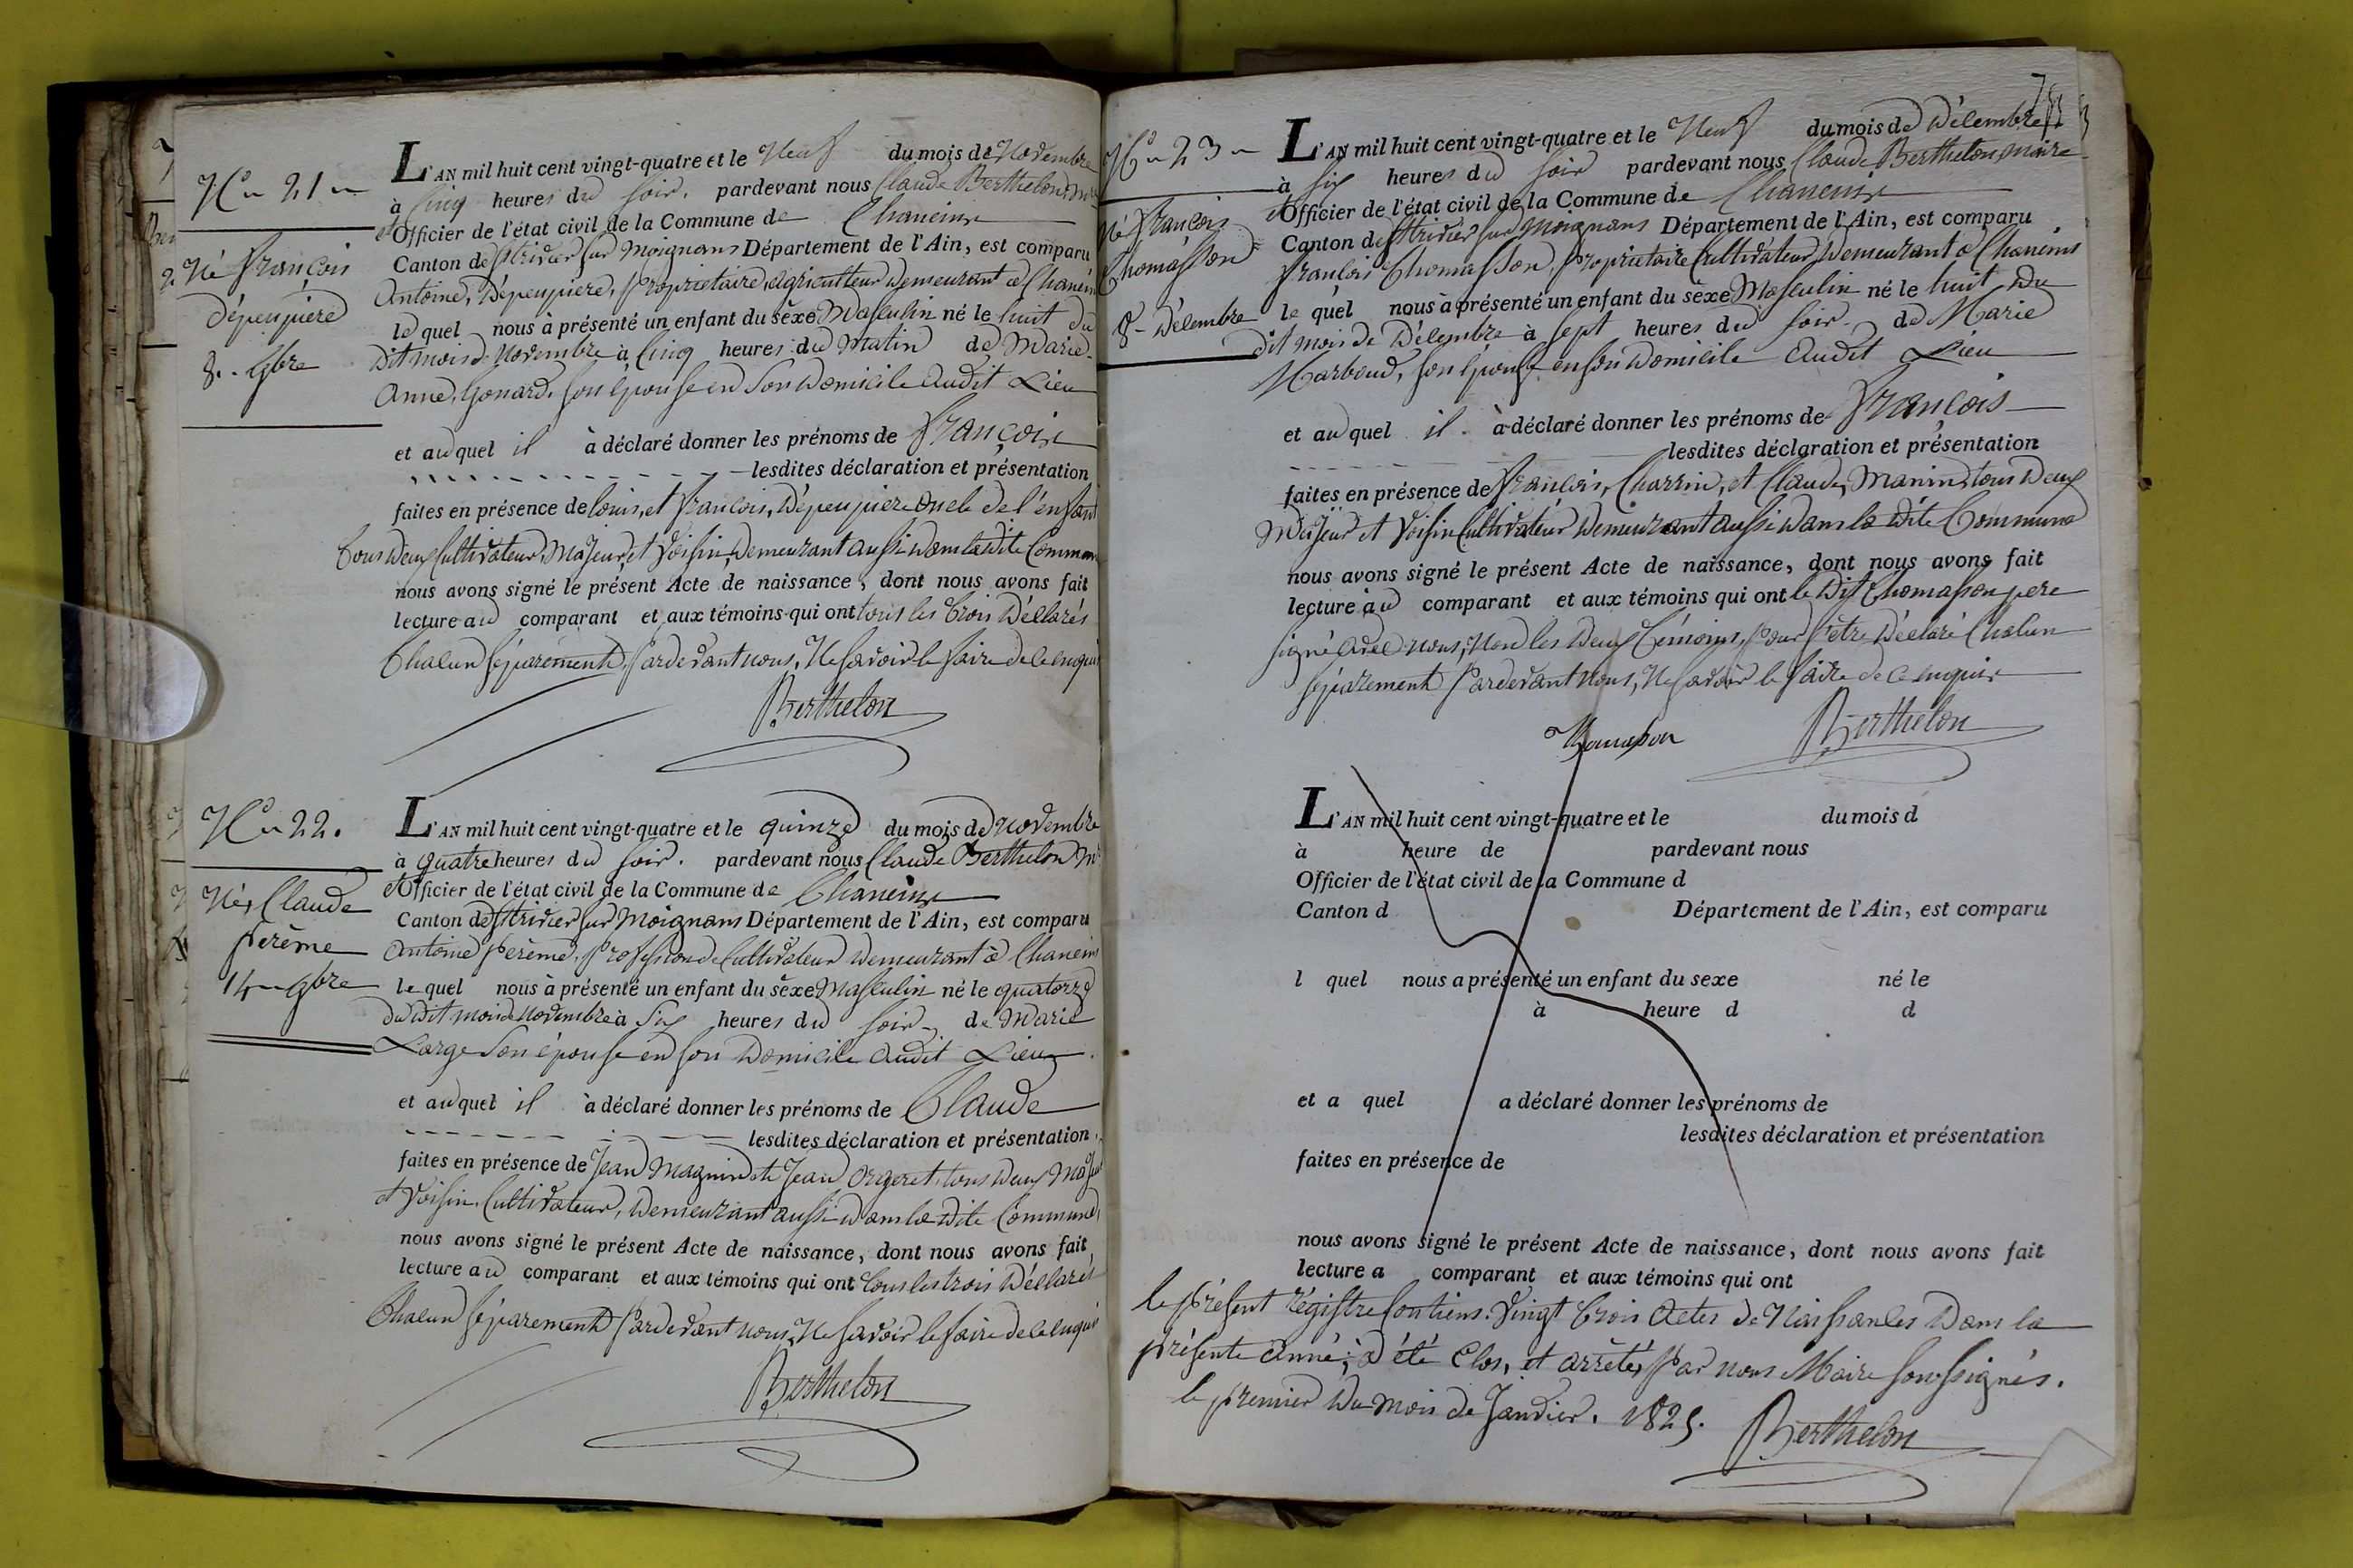 N.° 21
Né François
Dépeupiere
8. 9bre
L'AN mil huit cent vingt-quatre et le Neuf du mois de Novembre
à Cinq heures du soir, pardevant nous Claude Berthelon, M
et Officier de l'état civil de la Commune de Chaneins
Canton de St trivier sur Moignans Département de l'Ain, est comparu
Antoine, Dépeupiere, propriétaire, agriculteur demeurant à Chaneins
le quel nous à présenté un enfant du sèxe Masculin né le huit du
dit mois de Novembre à Cinq heures du Matin de Marie
Anne, Gonard, son épouse en son domicile audit Lieu
et au quel il à déclaré donner les prénoms de François
lesdites déclaration et présentation
faites en présence de louis, et François, Dépeupiere oncle de l'enfant
tous deux Cultivateur, Majeur, et Voisin, demeurant aussi dans la dite Commune
nous avons signé le présent Acte de naissance, dont nous avons fait
lecture au comparant et aux témoins qui ont tous les trois déclarés
Chacun séparement, pardevant nous, Ne savoir le faire de ce enquis
Berthelon
N.° 22.
Né, Claude
perême
14 9bre
L'AN mil huit cent vingt-quatre et le quinze du mois de Novembre
à quatre heures du soir, pardevant nous Claude Berthelon Mre
et Officier de l'état civil de la Commune de Chaneins
Canton de St trivier sur Moignans Département de l'Ain, est comparu
Antoine perême, profession de Cultivateur demeurant à Chaneins
le quel nous à présenté un enfant du sèxe Masculin né le quatorze
du dit mois de Novembre à Six heures du soir, de Marie
Large son épouse en son domicile audit Lieu
et au quel il à déclaré donner les prénoms de Claude
lesdites déclaration et présentation,
faites en présence de Jean Magnin et Jean Orgeret, tous deux Majeur
et Voisin, Cultivateur, demeurant aussi dans la dite Commune,
nous avons signé le présent Acte de naissance, dont nous avons fait
lecture au comparant et aux témoins qui ont tous les trois déclarés
Chacun séparement pardevant nous, Ne savoir le faire de ce enquis
Berthelon
N.° 23
Né François
Thomasson
8 Décembre
L'AN mil huit cent vingt-quatre et le Neuf du mois de Décembre
à six heures du soir pardevant nous Claude Berthelon, maire
et Officier de l'état civil de la Commune de Chaneins
Canton de St trivier sur Moignans Département de l'Ain, est comparu
François Thomasson, propriétaire Cultivateur, demeurant à Chaneins
le quel nous à présenté un enfant du sèxe Masculin né le huit du
dit mois de Décembre à sept heures du soir de Marie
Marboud, son épouse en son domicile audit Lieu
et au quel il à déclaré donner les prénoms de François
lesdites déclaration et présentation
faites en présence de François, Charrin, et Claude, Manin, tous deux
Majeur et Voisin Cultivateur demeurant aussi dans la dite Commune
nous avons signé le présent Acte de naissance, dont nous avons fait
lecture au comparant et aux témoins qui ont le dit Thomasson pere
signé avec nous, Non les deux témoins, pour s'être déclaré Chacun
séparement pardevant nous, Ne savoir le faire de ce enquis
Thomasson Berthelon
L'AN mil huit cent vingt-quatre et le du mois d
à heure de pardevant nous
Officier de l'état civil de la Commune d
Canton d Département de l'Ain, est comparu
l quel nous a présenté un enfant du sexe né le
à heure d d
et a quel a déclaré donner les prénoms de
lesdites déclaration et présentation
faites en présence de
nous avons signé le présent Acte de naissance, dont nous avons fait
lecture a comparant et aux témoins qui ont
le présent régistre Contiens Vingt trois Actes de Naissances dans la
présente année; à été Clos, et arrêtés, par nous Maire soussignés.
le premier du mois de Janvier. 1825.
Berthelon